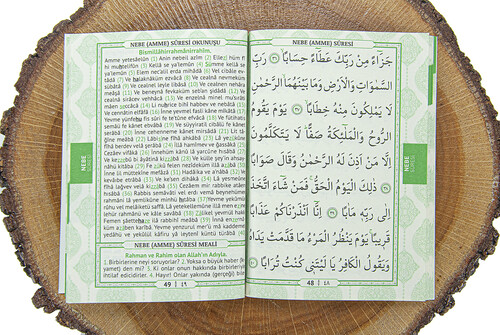 NEBE (AMME) SÛRESİ OKUNUŞU
Bismillâhirrahmânirrahîm.
Amme yetesâelûn (1) Anin nebeil azîm (2) Ellezî hüm fî
hi muhtelifûn (3) Kellâ se ya'lemûn (4) Sümme kellâ se
ya'lemûn (5) Elem nec'alil erda mihâdâ (6) Vel cibâle ev
tâdâ (7) Ve halaknâküm ezvâcâ (8) Ve cealnâ nevmeküm
sübâtâ (9) Ve cealnel leyle libâsâ (10) Ve cealnen nehâra
meâşâ (11) Ve beneynâ fevkaküm seb'an şidâdâ (12) Ve
cealnâ sirâcev vehhâcâ (13) Ve enzelnâ minel mu'sırâti
mâen seccâcâ (14) Li nuhrice bihî habbev ve nebâtâ (15)
Ve cennâtin elfâfâ (16) İnne yevmel fasli kâne mîkâtâ (17)
Yevme yünfehu fis sûri fe te'tûne efvâcâ (18) Ve fütihatis
semâü fe kânet ebvâbâ (19) Ve süyyiratil cibâlü fe kânet
serâbâ (20) İnne cehenneme kânet mirsâdâ (21) Lit tâ
ğîne meâbâ (22) Lâbisîne fîhâ ahkâbâ (23) Lâ yezûkûne
fîhâ berdev velâ şerâbâ (24) İllâ hamîmev ve ğassâkâ (25)
Cezâev vifâkâ (26) İnnehüm kânû lâ yercûne hisâbâ (27)
Ve kezzebû bi âyâtinâ kizzâbâ (28) Ve külle şey'in ahsay
nâhü kitâbâ (29) Fe zûkû felen nezîdeküm illâ azâbâ (30)
İnne lil müttekîne mefâzâ (31) Hadâika ve a'nâbâ (32) Ve
kevâibe etrâbâ (33) Ve ke'sen dihâkâ (34) Lâ yesmeûne
fîhâ lağvev velâ kizzâbâ (35) Cezâem mir rabbike atâen
hisâbâ (36) Rabbis semâvâti vel erdı vemâ beynehümer
rahmâni lâ yemlikûne minhü hitâbâ (37) Yevme yekûmür
rûhu vel melâiketü saffâ. Lâ yetekellemûne illâ men ezine
lehür rahmânü ve kâle savâbâ (38) Zâlikel yevmül hakk.
Femen şâettehaze ilâ rabbihî meâbâ (39) İnnâ enzernâ
küm azâben karîbâ. Yevme yenzurul mer'ü mâ kaddemet
yedâhü ve yekûlül kâfiru yâ leytenî küntü türâbâ (40)
NEBE (AMME) SÛRESİ MEALİ
Rahman ve Rahîm olan Allah'ın Adıyla.
1. Birbirlerine neyi soruyorlar? 2. Yoksa o büyük haber (kı
yamet) den mi? 3. Ki onlar onun hakkında birbirleriyle
ihtilaf edicidirler. 4. Hayır! Onlar yakında (gerçeği) bi
49 | ٤٩
NEBE
NEBE (AMME) SÛRESİ
جَزَاءً مِنْ رَبِّكَ عَطَاءً حِسَابًا ﴿٣٦﴾ رَبِّ
السَّمٰوَاتِ وَالْاَرْضِ وَمَا بَيْنَهُمَا الرَّحْمٰنِ
لَا يَمْلِكُونَ مِنْهُ خِطَابًا ﴿٣٧﴾ يَوْمَ يَقُومُ
الرُّوحُ وَالْمَلٰئِكَةُ صَفًّا لَا يَتَكَلَّمُونَ
اِلَّا مَنْ اَذِنَ لَهُ الرَّحْمٰنُ وَقَالَ صَوَابًا
﴿٣٨﴾ ذٰلِكَ الْيَوْمُ الْحَقُّ فَمَنْ شَاءَ اتَّخَذَ
اِلٰى رَبِّهِ مَاٰبًا ﴿٣٩﴾ اِنَّا اَنْذَرْنَاكُمْ عَذَابًا
قَرِيبًا يَوْمَ يَنْظُرُ الْمَرْءُ مَا قَدَّمَتْ يَدَاهُ
وَيَقُولُ الْكَافِرُ يَا لَيْتَنِى كُنْتُ تُرَابًا ﴿٤٠﴾
48 | ٤٨
NEBE